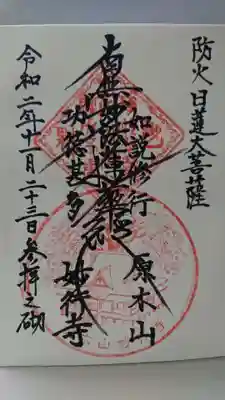 防火日蓮大菩薩
如説修行
原木山
南無妙法蓮華経
功徳甚多
妙行寺
令和二年十一月二十三日参拝之砌